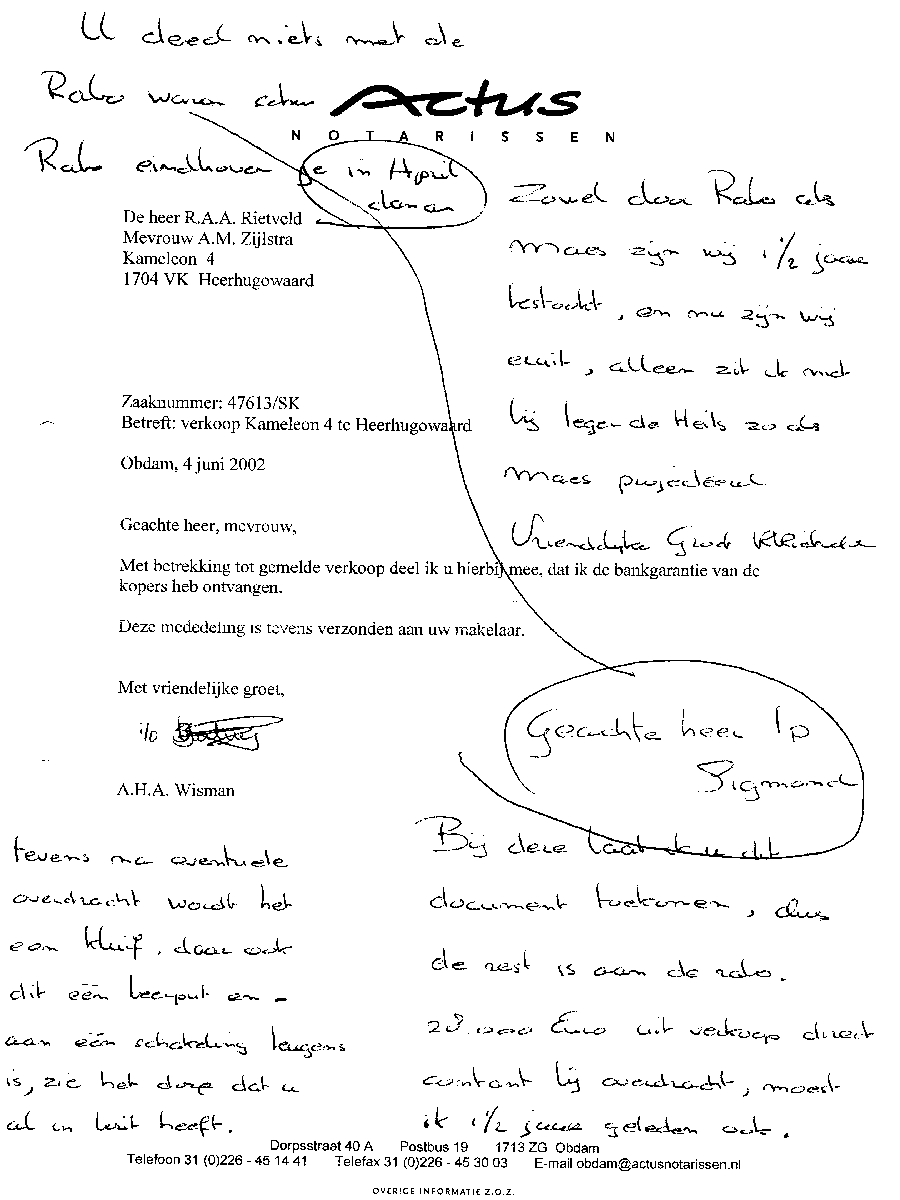 U deed niets met de
Rabo waren
Actus
NOTARISSEN
Rabo eindhoven je in April
De heer R.A.A. Rietveld
Mevrouw A.M. Zijlstra
Kameleon 4
1704 VK Heerhugowaard
Zowel door Rabo als
Maes zijn wij 1½ jaar
bestookt, en nu zijn wij
eruit, alleen zit ik niet
bij leger de Heils zoals
Maes
Vriendelijke Groet
Zaaknummer: 47613/SK
Betreft: verkoop Kameleon 4 te Heerhugowaard
Obdam, 4 juni 2002
Geachte heer, mevrouw,
Met betrekking tot gemelde verkoop deel ik u hierbij mee, dat ik de bankgarantie van de
kopers heb ontvangen.
Deze mededeling is tevens verzonden aan uw makelaar.
Met vriendelijke groet,
i/o
A.H.A. Wisman
Geachte heer
Sigmond
Bij deze laat ik u dit
document toekomen, dus
de rest is aan de rabo.
28.000 Euro uit verkoop direct
contant bij overdracht, moest
ik 1½ jaar geleden ook.
tevens na eventuele
overdracht wordt het
een kluif, daar ook
dit één beerput en -
aan één schakeling leugens
is, zie het dorp dat u
al in bezit heeft.
Dorpsstraat 40 A Postbus 19 1713 ZG Obdam
Telefoon 31 (0)226 - 45 14 41 Telefax 31 (0)226 - 45 30 03 E-mail obdam@actusnotarissen.nl
OVERIGE INFORMATIE Z.O.Z.